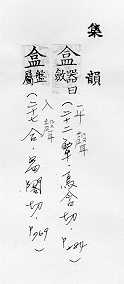 集韻
平聲
盒 器曰斂(二十二覃烏含切. P284)
入聲
盒 盤屬(二十七合.曷閤切. P769)